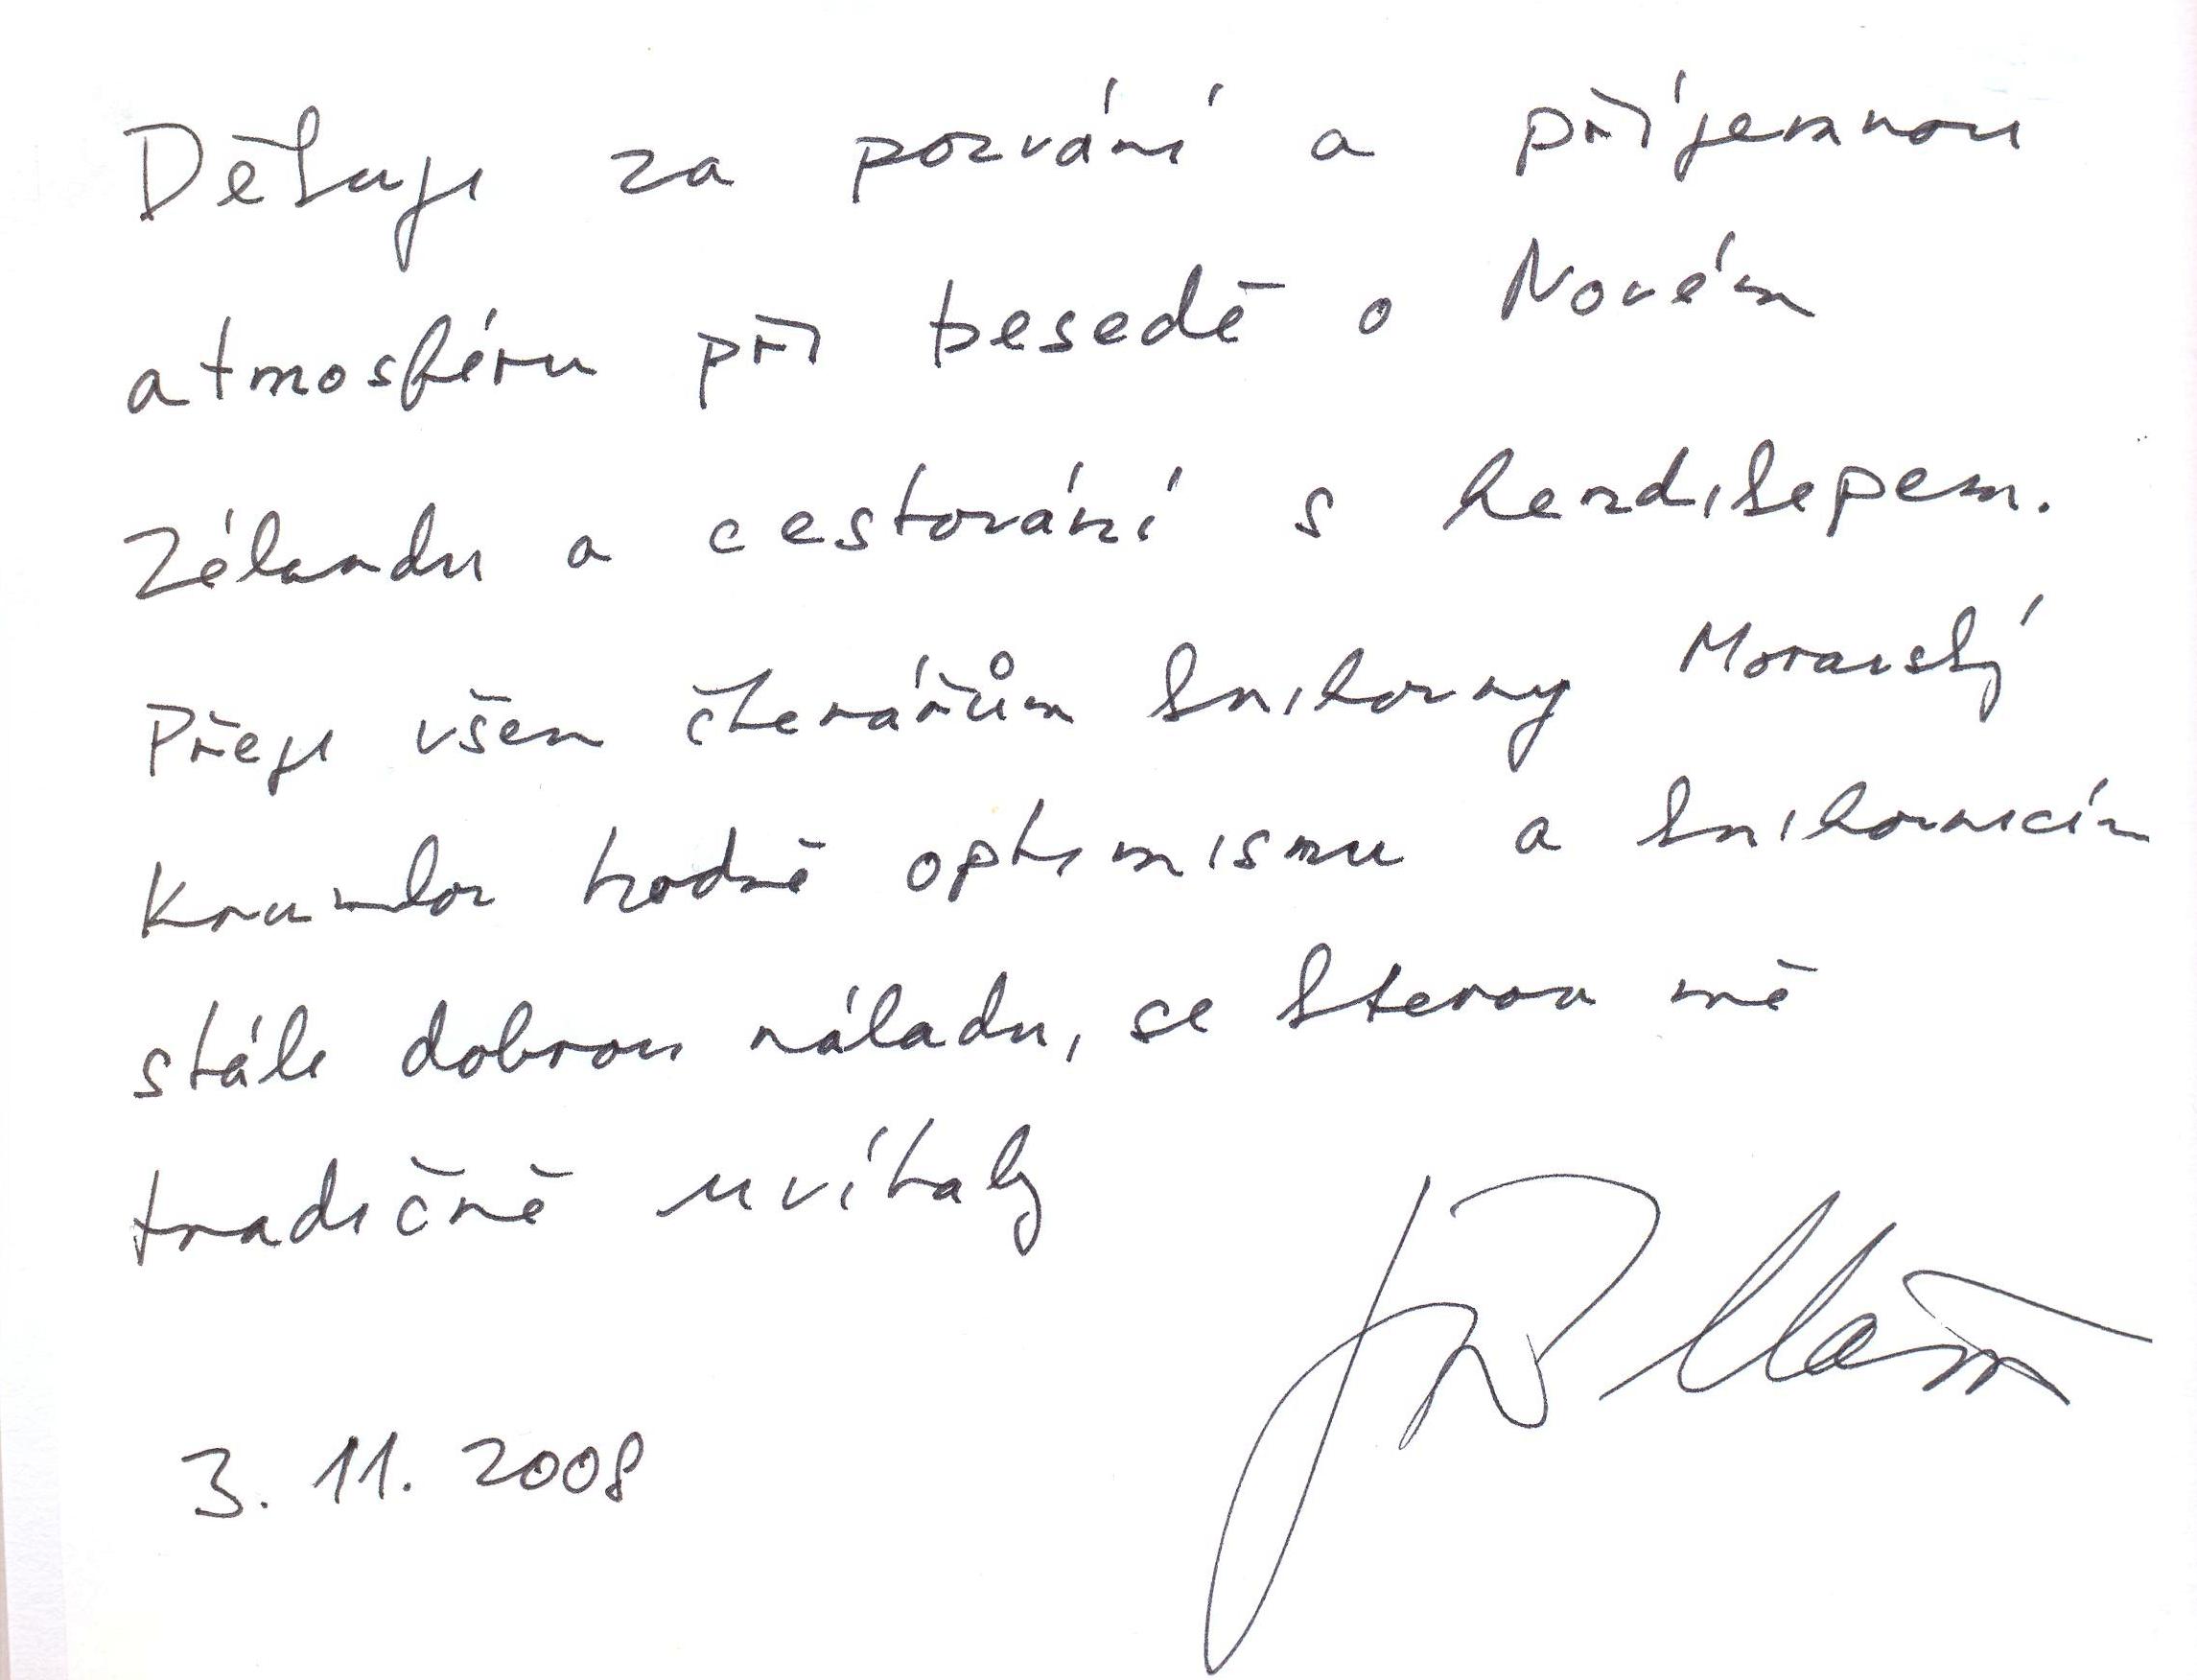 Děkuji za pozvání a příjemnou
atmosféru při besedě o Novém
Zélandu a cestování s handikepem.
Přeji všem čtenářům knihovny Moravský
Krumlov hodně optimismu a knihovnicím
stále dobrou náladu, se kterou mě
tradičně uvítaly
3. 11. 2008